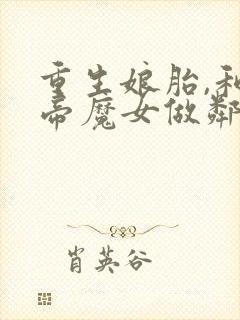 重生娘胎,和
帝魔女做鄰
肖英谷